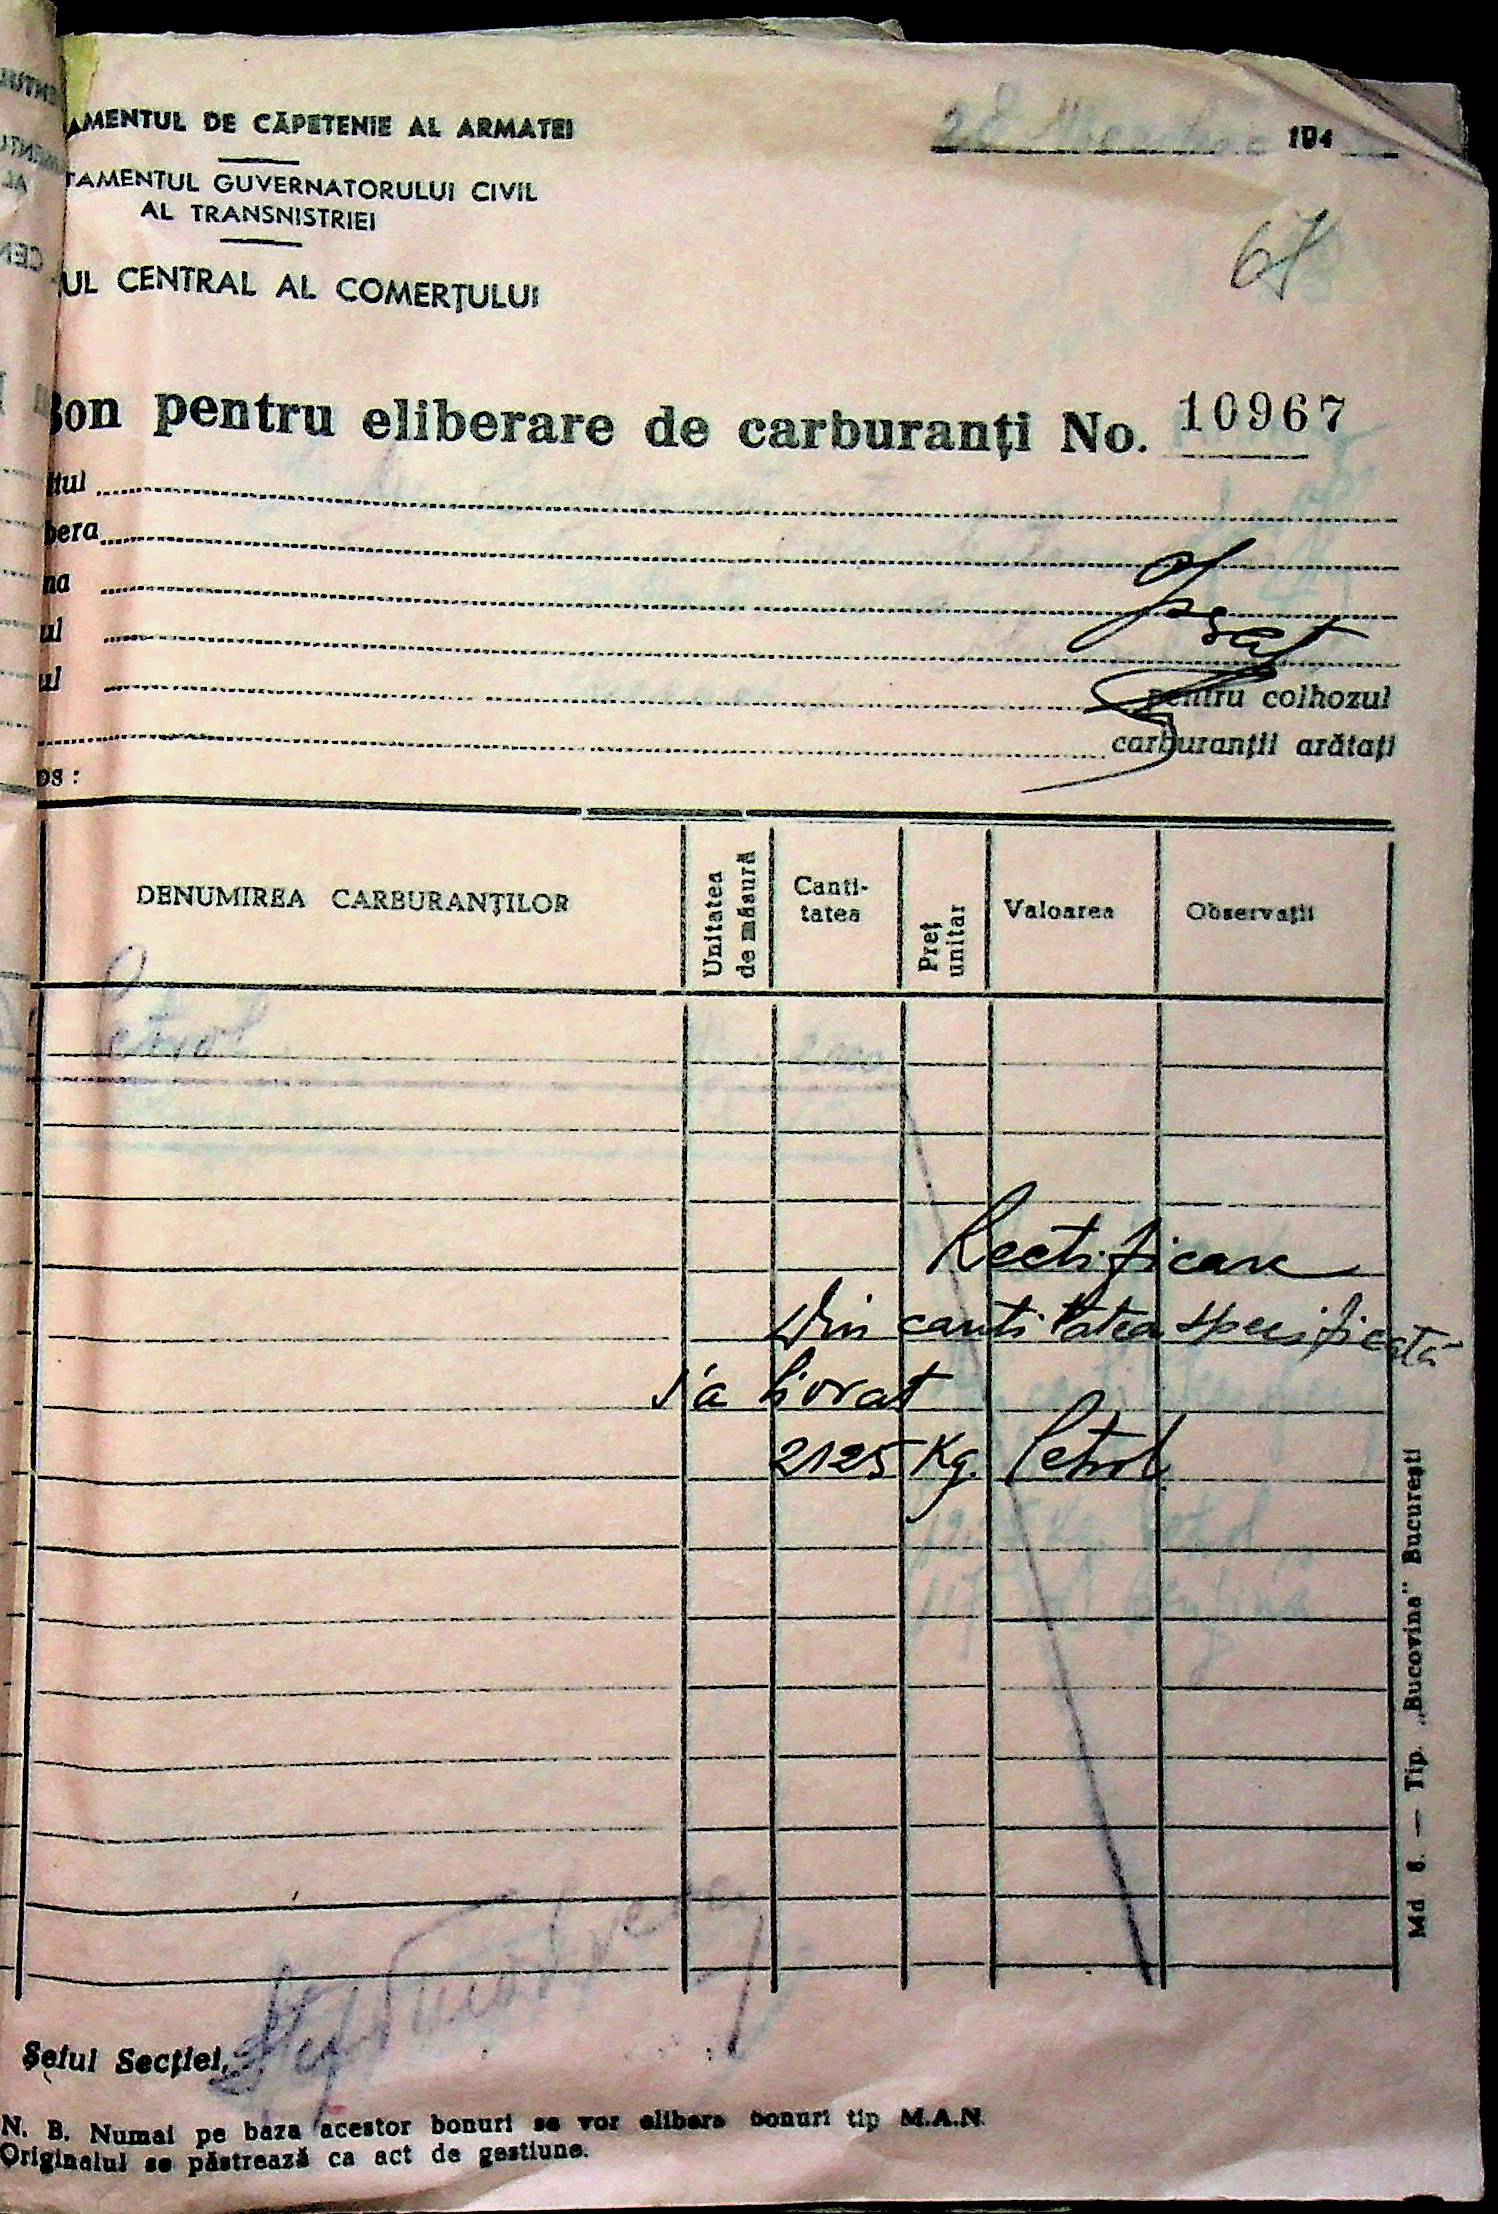 AMENTUL DE CĂPETENIE AL ARMATEI
28 194
TAMENTUL GUVERNATORULUI CIVIL
AL TRANSNISTRIEI
UL CENTRAL AL COMERȚULUI
67
Bon pentru eliberare de carburanți No. 10967
tul
bera
na
ul
ul pentru colhozul
carburanții arătați
os :
DENUMIREA CARBURANȚILOR
Unitatea de măsură
Canti-
tatea
Preț unitar
Valoarea
Observații
Petrol
Rectificare
Din cantitatea specificată
s'a livrat
2125 Kg. Petrol
Șeful Secției,
N. B. Numai pe baza acestor bonuri se vor elibera bonuri tip M.A.N.
Originalul se păstrează ca act de gestiune.
Md 6. — Tip. „Bucovina" București